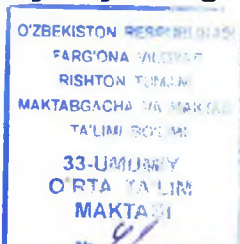 O'ZBEKISTON RESPUBLIKASI
FARG'ONA VILOYATI
RISHTON TUMANI
MAKTABGACHA VA MAKTAB
TA'LIMI BO'LIMI
33-UMUMIY
O'RTA TA'LIM
MAKTABI